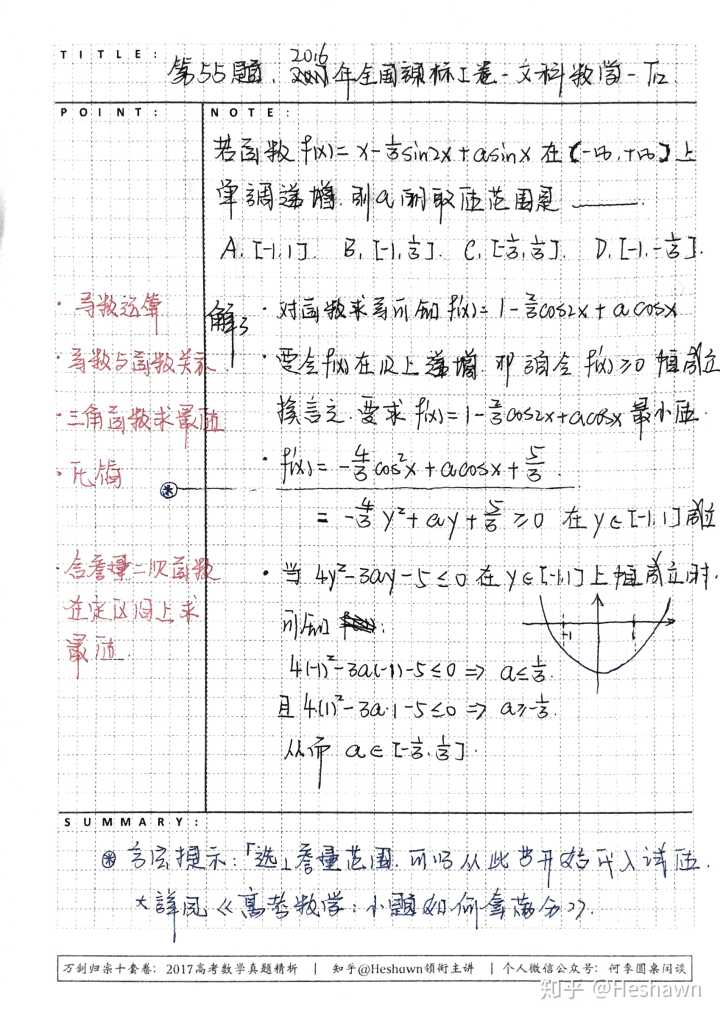 TITLE:
第55题. 2016年全国课标I卷-文科数学-T12
POINT:
NOTE:
若函数 f(x)=x-⅓sin2x+asinx 在(-∞,+∞)上
单调递增.则a的取值范围是 ____.
A.[-1,1]. B.[-1,⅓]. C.[-⅓,⅓]. D.[-1,-⅓].
·导数运算
·导数与函数关系
·三角函数求最值
·配偶
·含参量二次函数
在定区间上求
最值.
解:
·对函数求导可知 f'(x)=1-⅔cos2x+acosx
·要令f(x)在R上递增.即须令 f'(x)≥0 恒成立
换言之.要求 f'(x)=1-⅔cos2x+acosx 最小值.
·f'(x)=-4/3cos²x+acosx+5/3.
=-4/3y²+ay+5/3≥0 在y∈[-1,1]成立
·当 4y²-3ay-5≤0 在y∈[-1,1]上恒成立时.
可知:
-1 1
4(-1)²-3a(-1)-5≤0 ⇒ a≤⅓.
且 4(1)²-3a·1-5≤0 ⇒ a≥-⅓.
从而 a∈[-⅓,⅓].
SUMMARY:
⊛ 方法提示:「选」参量范围.可以从此步开始代入试值.
*详见《高考数学:小题如何拿满分》.
万剑归宗十套卷:2017高考数学真题精析 | 知乎@Heshawn领衔主讲 | 个人微信公众号:何季圆桌闲谈
知乎 @Heshawn